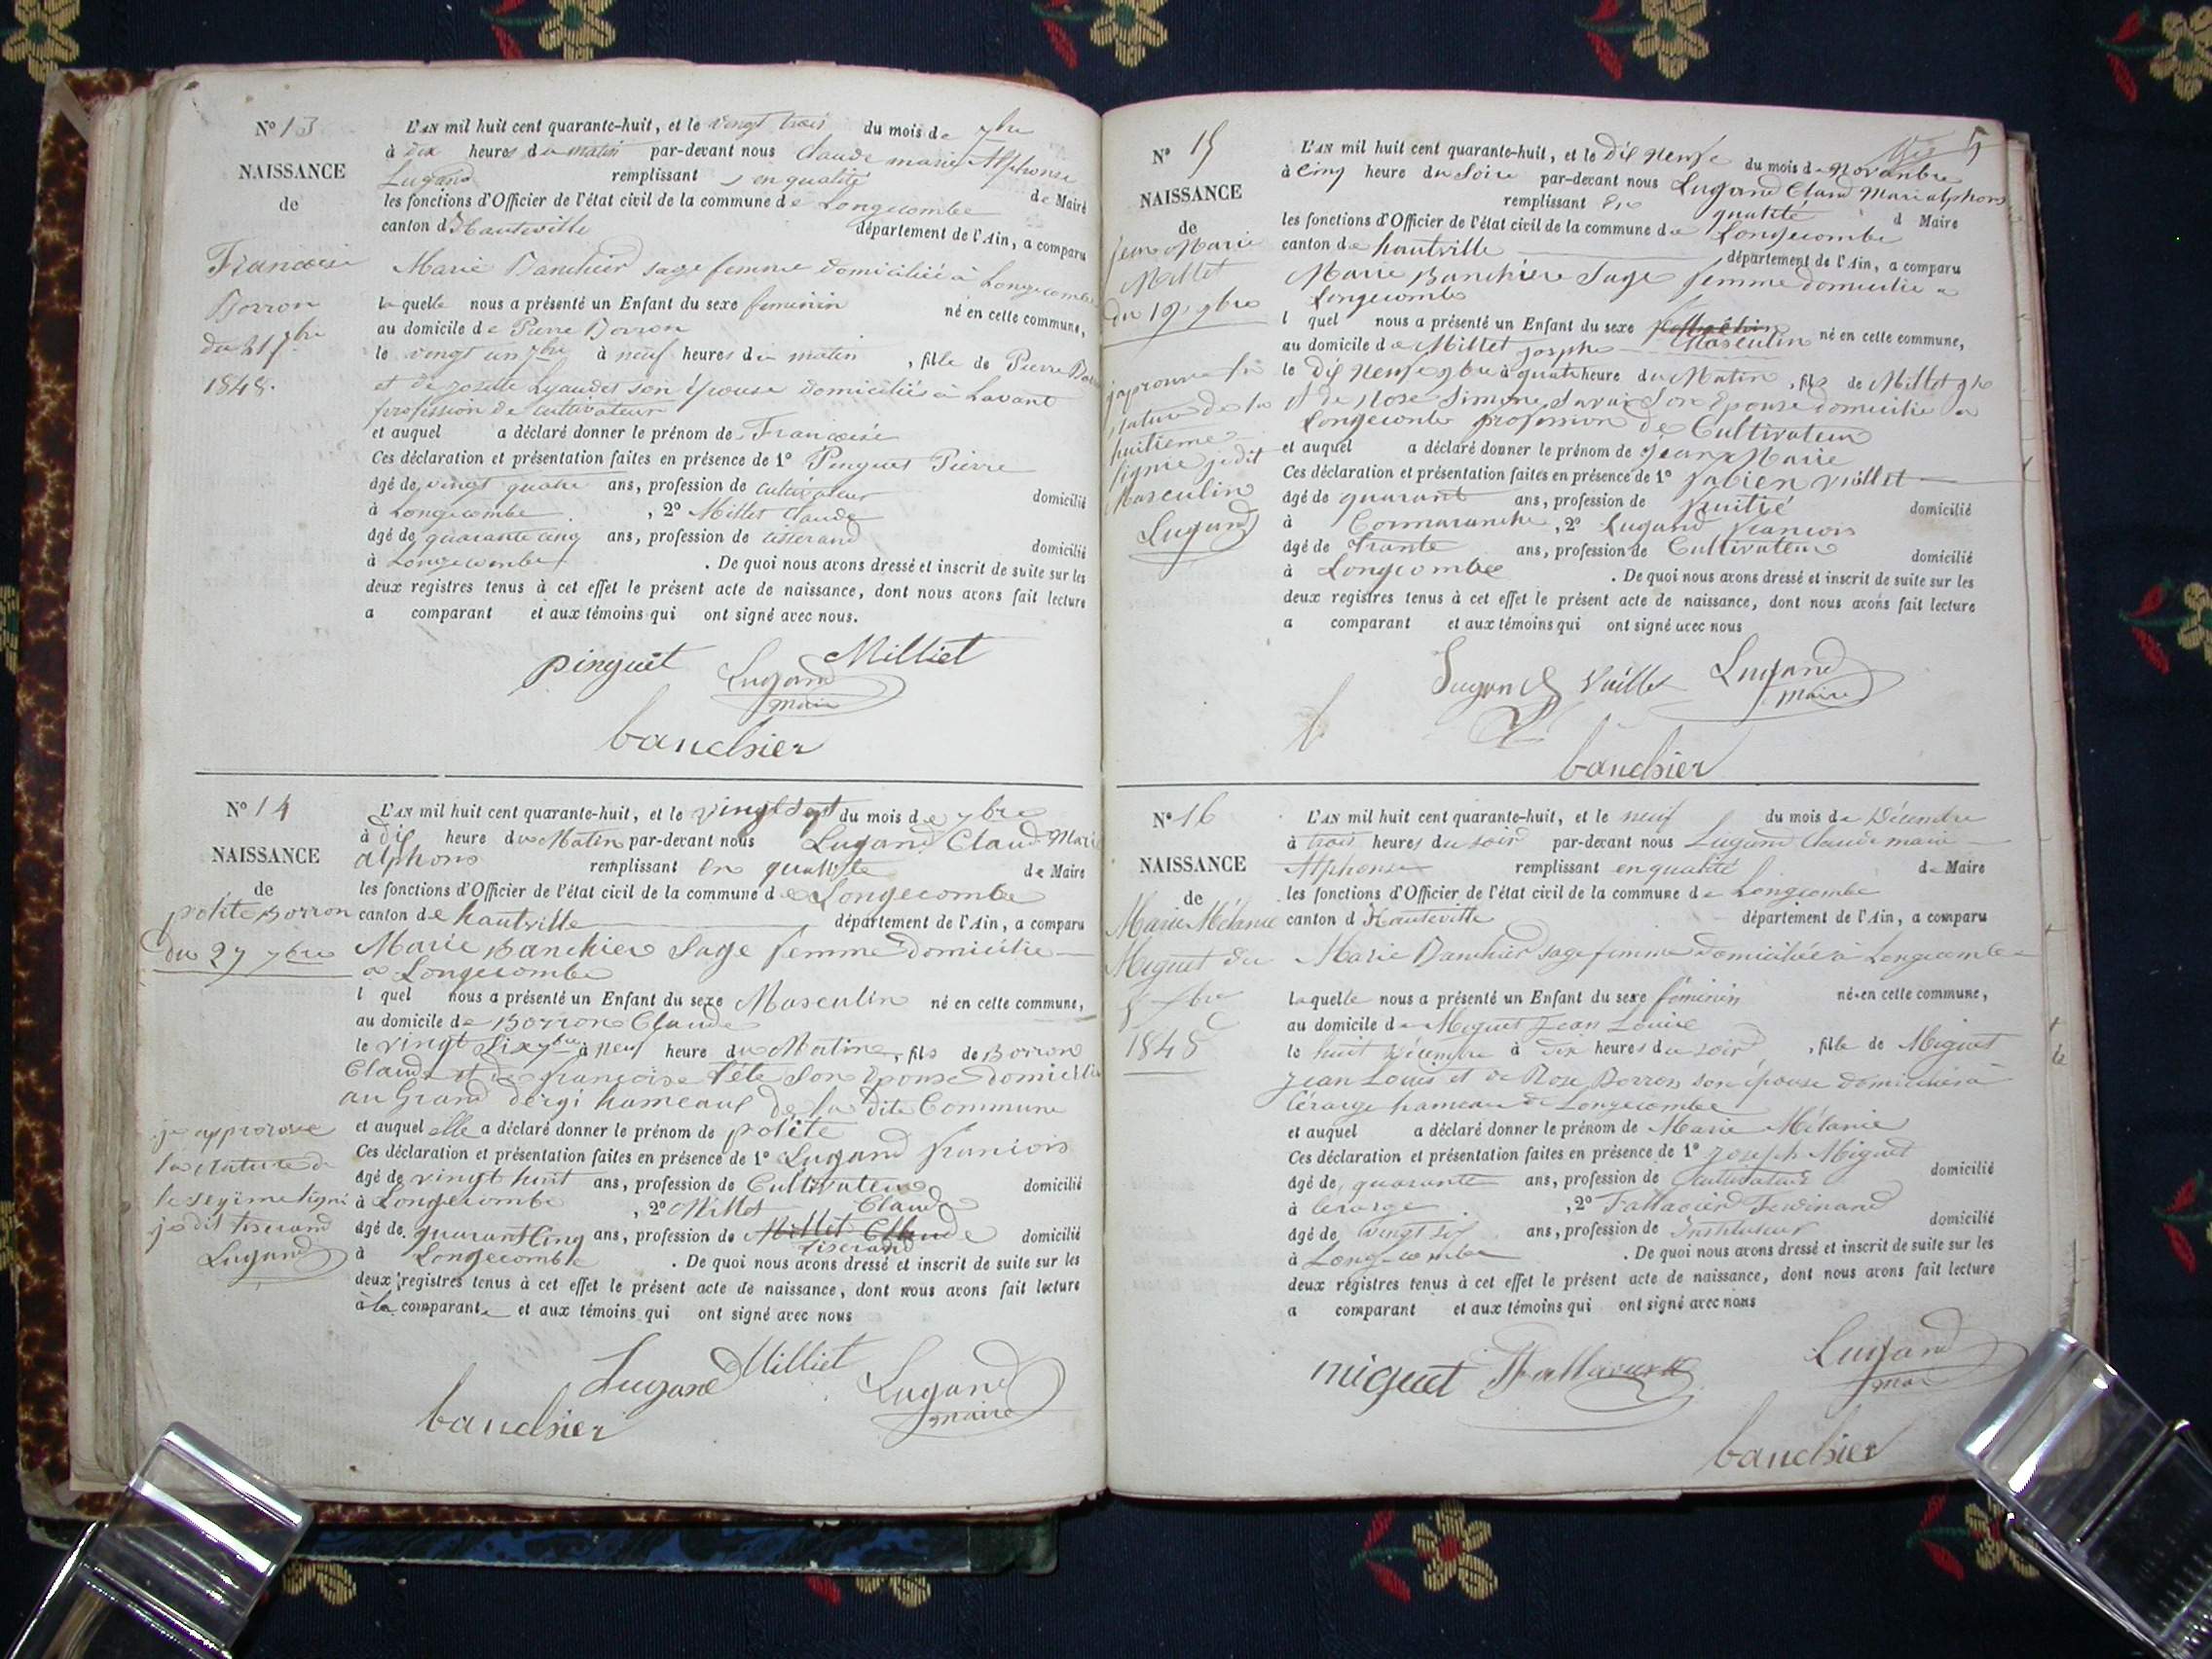 N° 13
NAISSANCE
de
Francoise
Borron
du 21 7bre
1848.
L'AN mil huit cent quarante-huit, et le vingt trois du mois de 7bre
à dix heures du matin par-devant nous Claude marie Alphonse
Lugand remplissant en qualité de Maire
les fonctions d'Officier de l'état civil de la commune de Longecombe
canton d'Hauteville département de l'Ain, a comparu
Marie Banchier sage femme domiciliée à Longecombe
la quelle nous a présenté un Enfant du sexe feminin né en cette commune,
au domicile de Pierre Borron
le vingt un 7bre à neuf heures du matin, fille de Pierre
et de Josette Lyaudet son épouse domiciliés à Lavant
profession de cultivateur
et auquel a déclaré donner le prénom de Francoise
Ces déclaration et présentation faites en présence de 1° Pinguet Pierre
âgé de vingt quatre ans, profession de cultivateur domicilié
à Longecombe, 2° Millet Claude
âgé de quarante cinq ans, profession de tisserand domicilié
à Longecombe. De quoi nous avons dressé et inscrit de suite sur les
deux registres tenus à cet effet le présent acte de naissance, dont nous avons fait lecture
a comparant et aux témoins qui ont signé avec nous.
pinguet Lugand Milliet
maire
banchier
N° 14
NAISSANCE
de
polite Borron
du 27 7bre
L'AN mil huit cent quarante-huit, et le vingt sept du mois de 7bre
à dis heure du Matin par-devant nous Lugand Claud Mari
alphons remplissant en qualiste de Maire
les fonctions d'Officier de l'état civil de la commune de Longecombe
canton de hautville département de l'Ain, a comparu
Marie Banchier Sage femme domicilie
a Longecombe
l quel nous a présenté un Enfant du sexe Masculin né en cette commune,
au domicile de Borron Claude
le vingt Six 7bre à neuf heure du Matin, fils de Borron
Claude et de francoise Tête Son Epouse domicilie
au Grand dergi hameaux de la dite Commune
et auquel elle a déclaré donner le prénom de polite
Ces déclaration et présentation faites en présence de 1° Lugand francois
âgé de vingt huit ans, profession de Cultivateur domicilié
à Longecombe, 2° Millet Claude
âgé de quarantcinq ans, profession de Millet Claude domicilié
tiserand
à Longecombe. De quoi nous avons dressé et inscrit de suite sur les
deux registres tenus à cet effet le présent acte de naissance, dont nous avons fait lecture
à la comparante et aux témoins qui ont signé avec nous
je approuve
la
je dit tiserand
Lugand
Lugand Milliet Lugand
maire
banchier
5
N° 15
NAISSANCE
de
Jean Marie
Millet
du 19 9bre
L'AN mil huit cent quarante-huit, et le Dis Neufe du mois de Novanbre
à Cinq heure du Soire par-devant nous Lugand Claud Marie alphons
remplissant en qualité d Maire
les fonctions d'Officier de l'état civil de la commune de Longecombe
canton de hautville département de l'Ain, a comparu
Marie Banchiére Sage femme domicilie a
Longecombe
l quel nous a présenté un Enfant du sexe Masculin né en cette commune,
au domicile de Millet Josphe
le Dis Neufe 9bre à quatre heure du Matin, fils de Millet
et de Rose Simone Savari Son Epouse domicilie a
Longecombe profession de Cultivateur
et auquel a déclaré donner le prénom de Jean Marie
Ces déclaration et présentation faites en présence de 1° fabien Vuillet
âgé de quarant ans, profession de fruitié domicilié
à Cormaranche, 2° Lugand francois
âgé de Trante ans, profession de Cultivateur domicilié
à Longecombe. De quoi nous avons dressé et inscrit de suite sur les
deux registres tenus à cet effet le présent acte de naissance, dont nous avons fait lecture
a comparant et aux témoins qui ont signé avec nous
huitieme
ligne je dit
Masculin
Lugand
Lugand Vuillet Lugand
maire
banchier
N° 16
NAISSANCE
de
Marie Mélanie
Miguet du
8 Xbre
1848
L'AN mil huit cent quarante-huit, et le neuf du mois de Décembre
à trois heures du soir par-devant nous Lugand Claude marie
Alphonse remplissant en qualité de Maire
les fonctions d'Officier de l'état civil de la commune de Longecombe
canton d'Hauteville département de l'Ain, a comparu
Marie Banchier sage femme domiciliée à Longecombe
laquelle nous a présenté un Enfant du sexe féminin né en cette commune,
au domicile de Miguet Jean Louise
le huit Décembre à dix heures du soir, fille de Miguet
Jean Louis et de Rose Borron son épouse domiciliés à
Lérarge hameau de Longecombe
et auquel a déclaré donner le prénom de Marie Mélanie
Ces déclaration et présentation faites en présence de 1° Joseph Miguet
âgé de quarante ans, profession de Cultivateur domicilié
à Lérarge, 2° Fallavier Ferdinand
âgé de vingt six ans, profession de Instituteur domicilié
à Longecombe. De quoi nous avons dressé et inscrit de suite sur les
deux registres tenus à cet effet le présent acte de naissance, dont nous avons fait lecture
a comparant et aux témoins qui ont signé avec nous
miguet Lugand
banchier